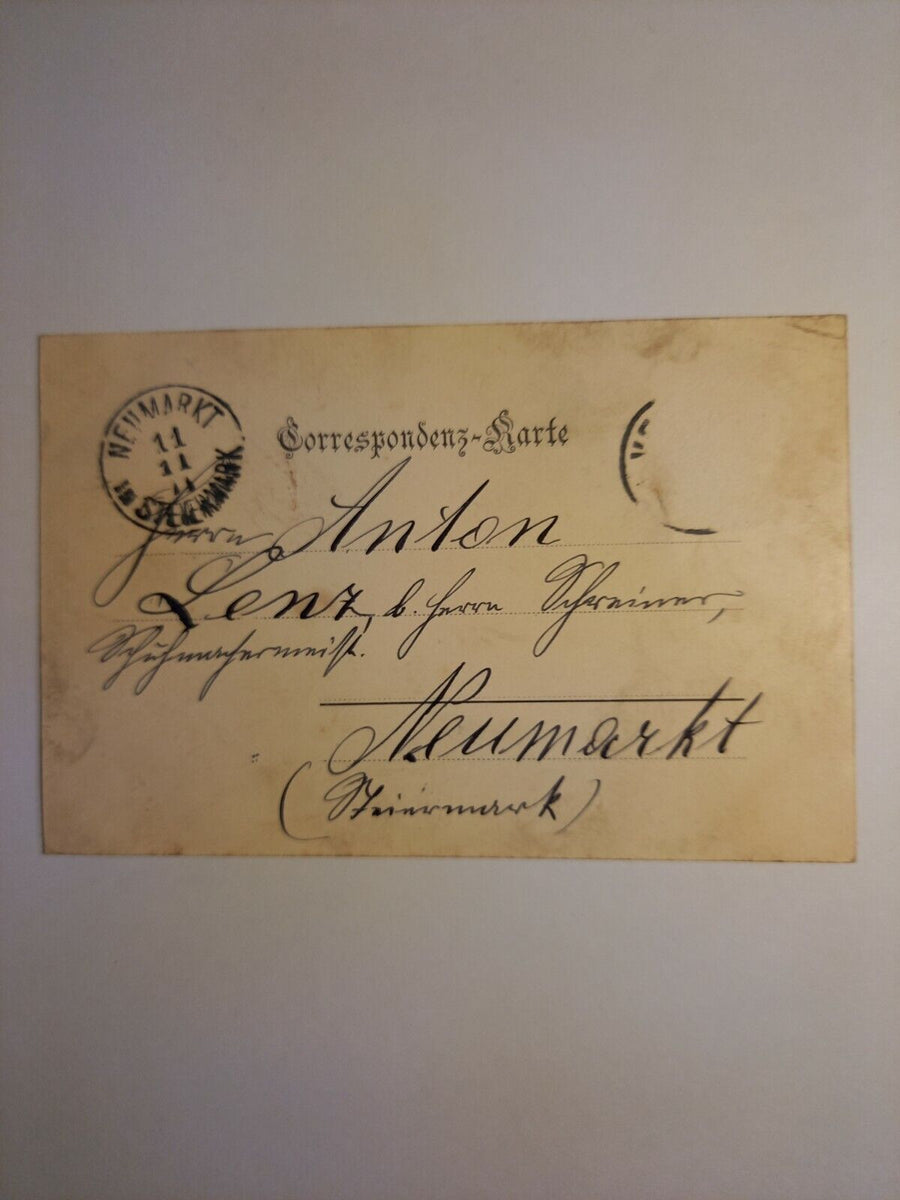 NEUMARKT
11
11
11
in STEIERMARK
Correspondenz-Karte
Herrn Anton
Lenz, b. Herrn Schreiner,
Schuhmachermeist.
Neumarkt
(Steiermark)